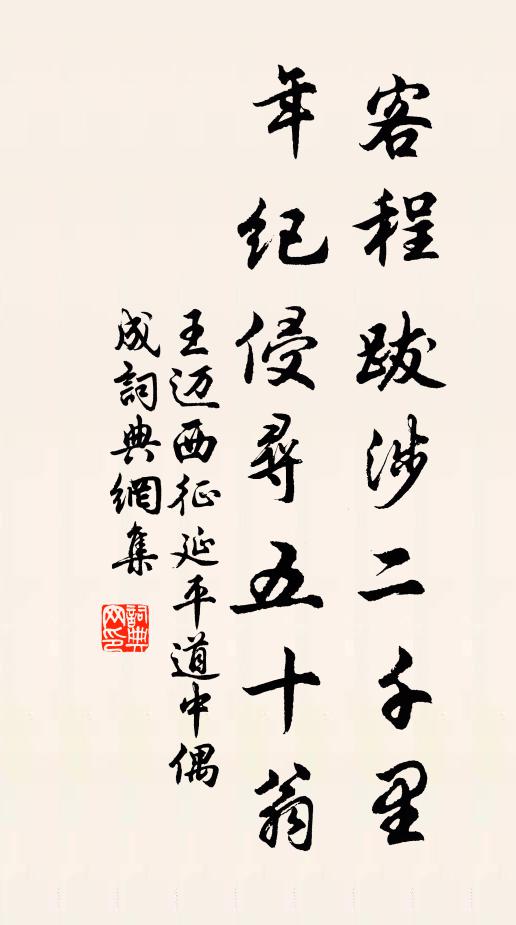 客程跋涉二千里
年纪侵尋五十翁
王迈西征延平道中偶
成詞典網集
詞典
网印